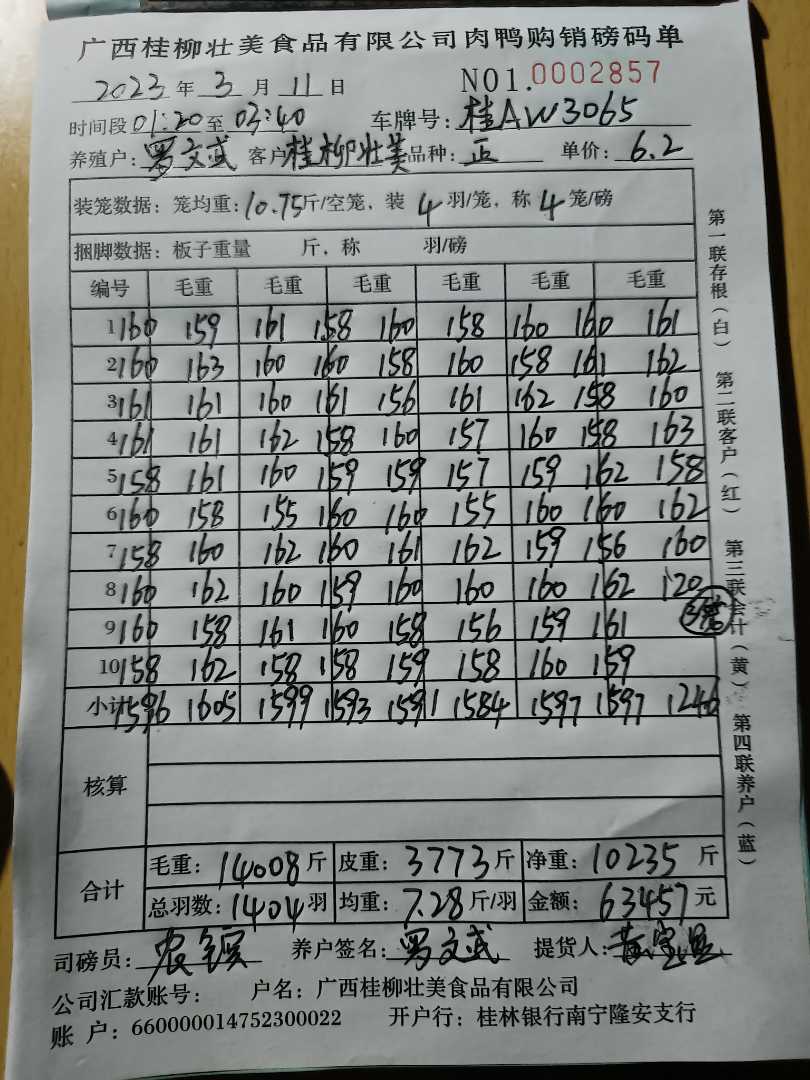 广西桂柳壮美食品有限公司肉鸭购销磅码单
2023年3月11日 NO1.0002857
时间段01:20至03:40 车牌号:桂AW3065
养殖户:罗文武 客户桂柳壮美品种:正 单价:6.2
装笼数据:笼均重:10.75斤/空笼,装4羽/笼,称4笼/磅
捆脚数据:板子重量 斤,称 羽/磅
编号 毛重 毛重 毛重 毛重 毛重 毛重
1 160 159 161 158 160 158 160 160 161
2 160 163 160 160 158 160 158 161 162
3 161 161 160 161 156 161 162 158 160
4 161 161 162 158 160 157 160 158 163
5 158 161 160 159 159 157 159 162 158
6 160 158 155 160 160 155 160 160 162
7 158 160 162 160 161 162 159 156 160
8 160 162 160 159 160 160 160 162 120
3笼
9 160 158 161 160 158 156 159 161
10 158 162 158 158 159 158 160 159
小计 1596 1605 1599 1593 1591 1584 1597 1597 1246
核算
合计 毛重:14008斤 皮重:3773斤 净重:10235斤
总羽数:1404羽 均重:7.28斤/羽 金额:63457元
司磅员: 养户签名:罗文武 提货人:
公司汇款账号: 户名:广西桂柳壮美食品有限公司
账 户:660000014752300022 开户行:桂林银行南宁隆安支行
第一联存根(白) 第二联客户(红) 第三联会计(黄) 第四联养户(蓝)